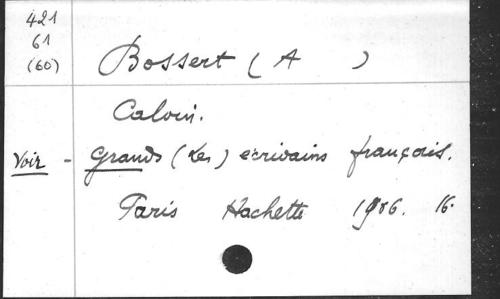 421
61
(60)
Bossert (A )
Calvin.
Voir - Grands (Les) écrivains français.
Paris Hachette 1906. 16.